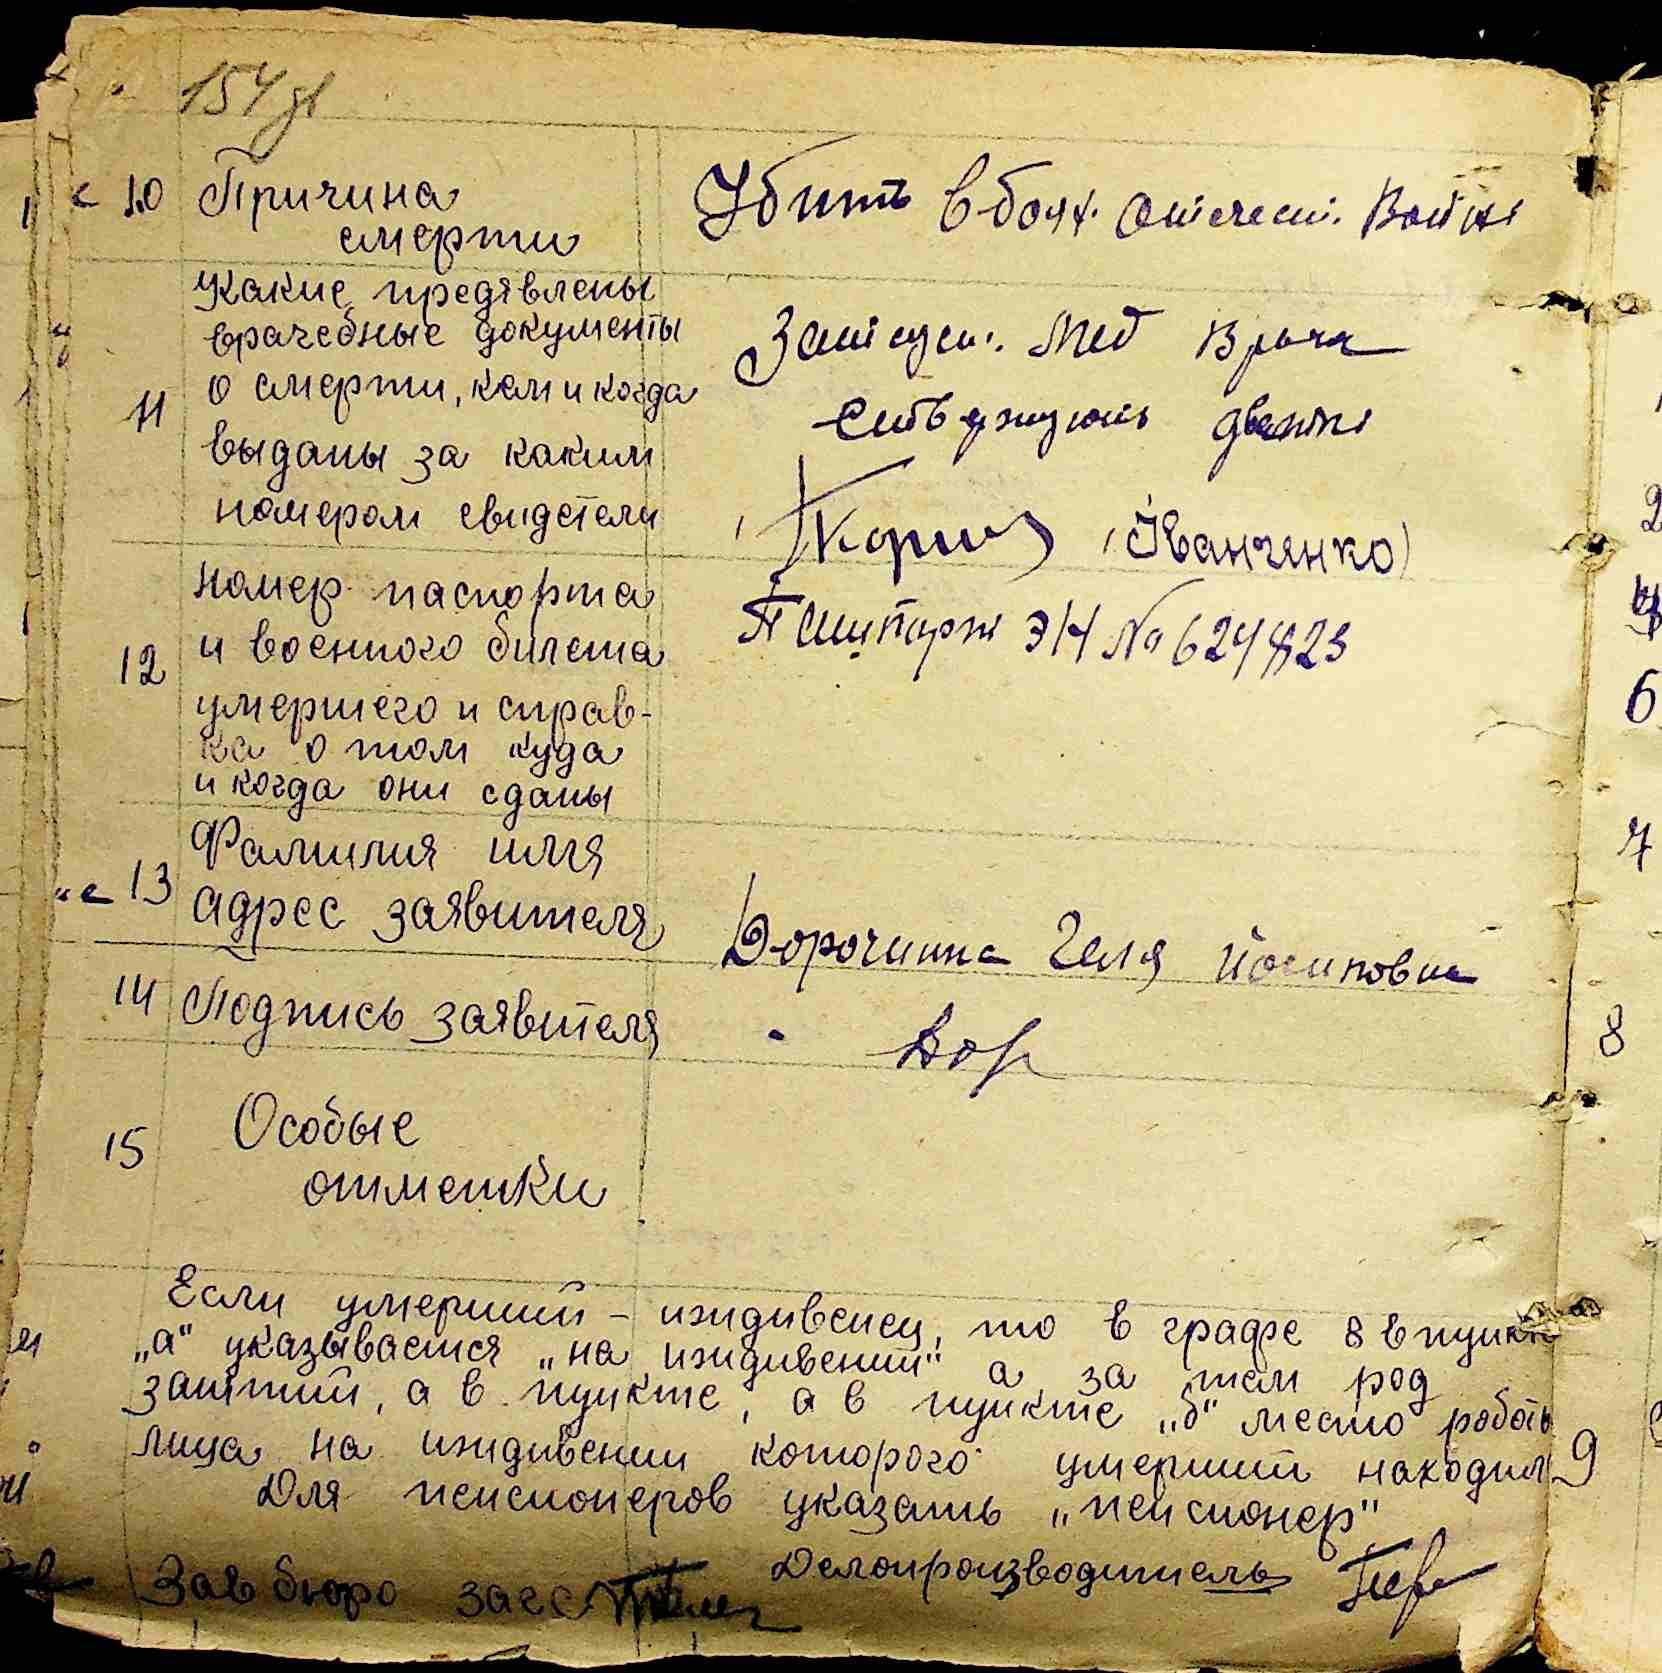 154
10 Причина
смерти
Убить в боях. Отечест. Войны
11
Какие предявлены
врачебные документы
о смерти, кем и когда
выданы за каким
номером свидетели
Мед Врача
(Иванченко)
12
номер паспорта
и военного билета
умершего и справ-
ка о том куда
и когда они сданы
№ 624
13
Фамилия имя
адрес заявителя
Дорочинка Геля Йосиповна
14 Подпись заявителя
Дор
15
Особые
отметки
Если умерший - иждивенец, то в графе 8 в пункте
„а" указывается „на иждивении" а за тем род
занятий, а в пункте, а в пункте „б" место работы
лица на иждивении которого умерший находил
Для пенсионеров указать „пенсионер"
Делопроизводитель
Зав бюро загс
2
6
7
8
9